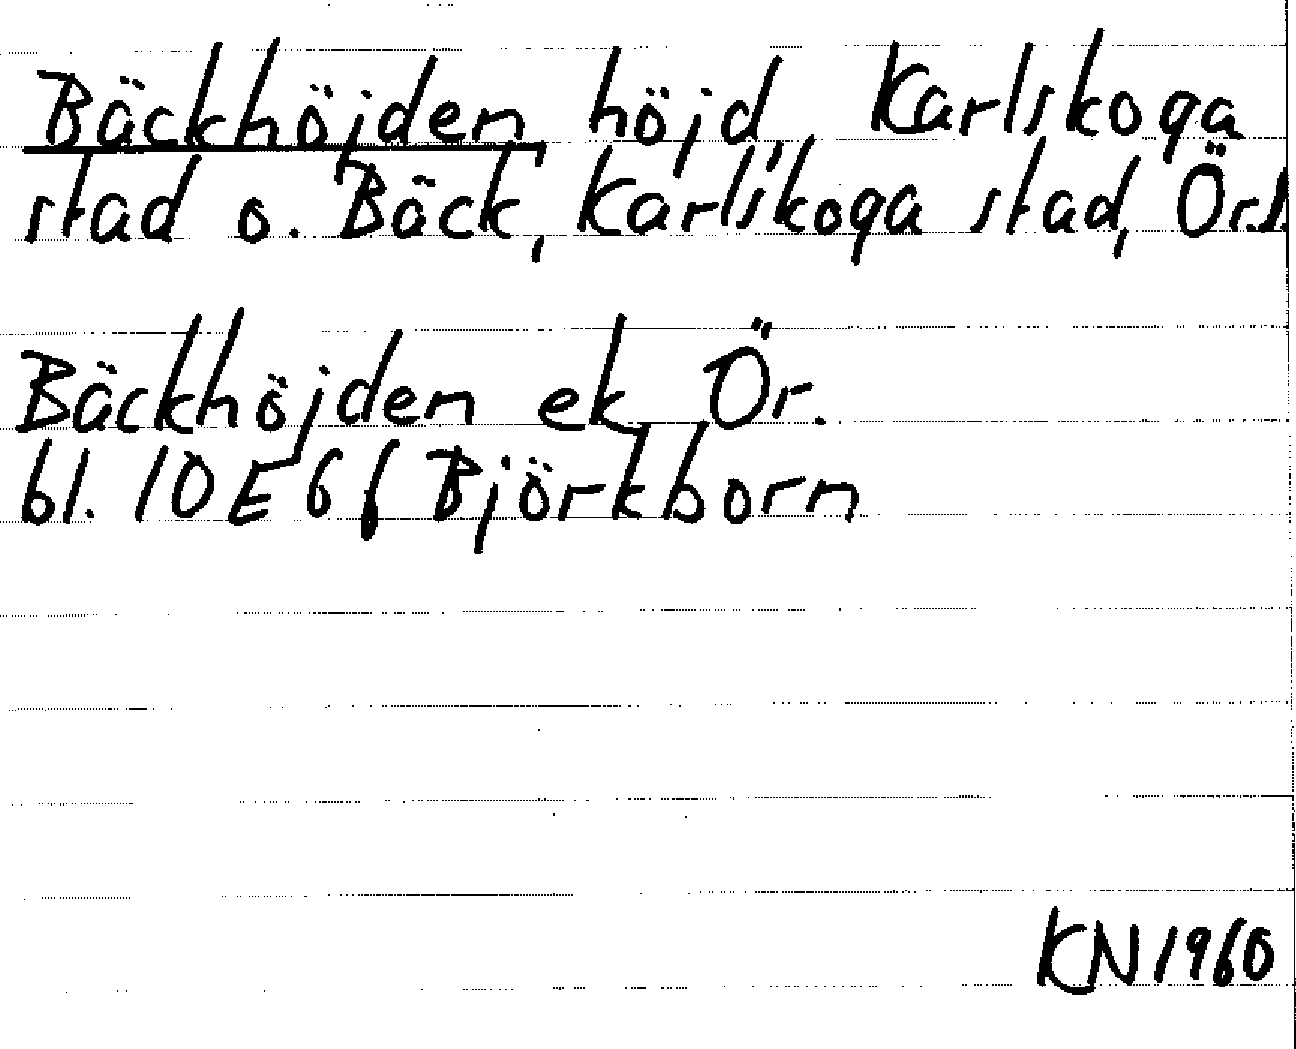 Bäckhöjden, höjd, Karlskoga
stad o. Bäck, Karlskoga stad, Ör.l.
Bäckhöjden ek Ör.
bl. 10E6f Björkborn
KN1960